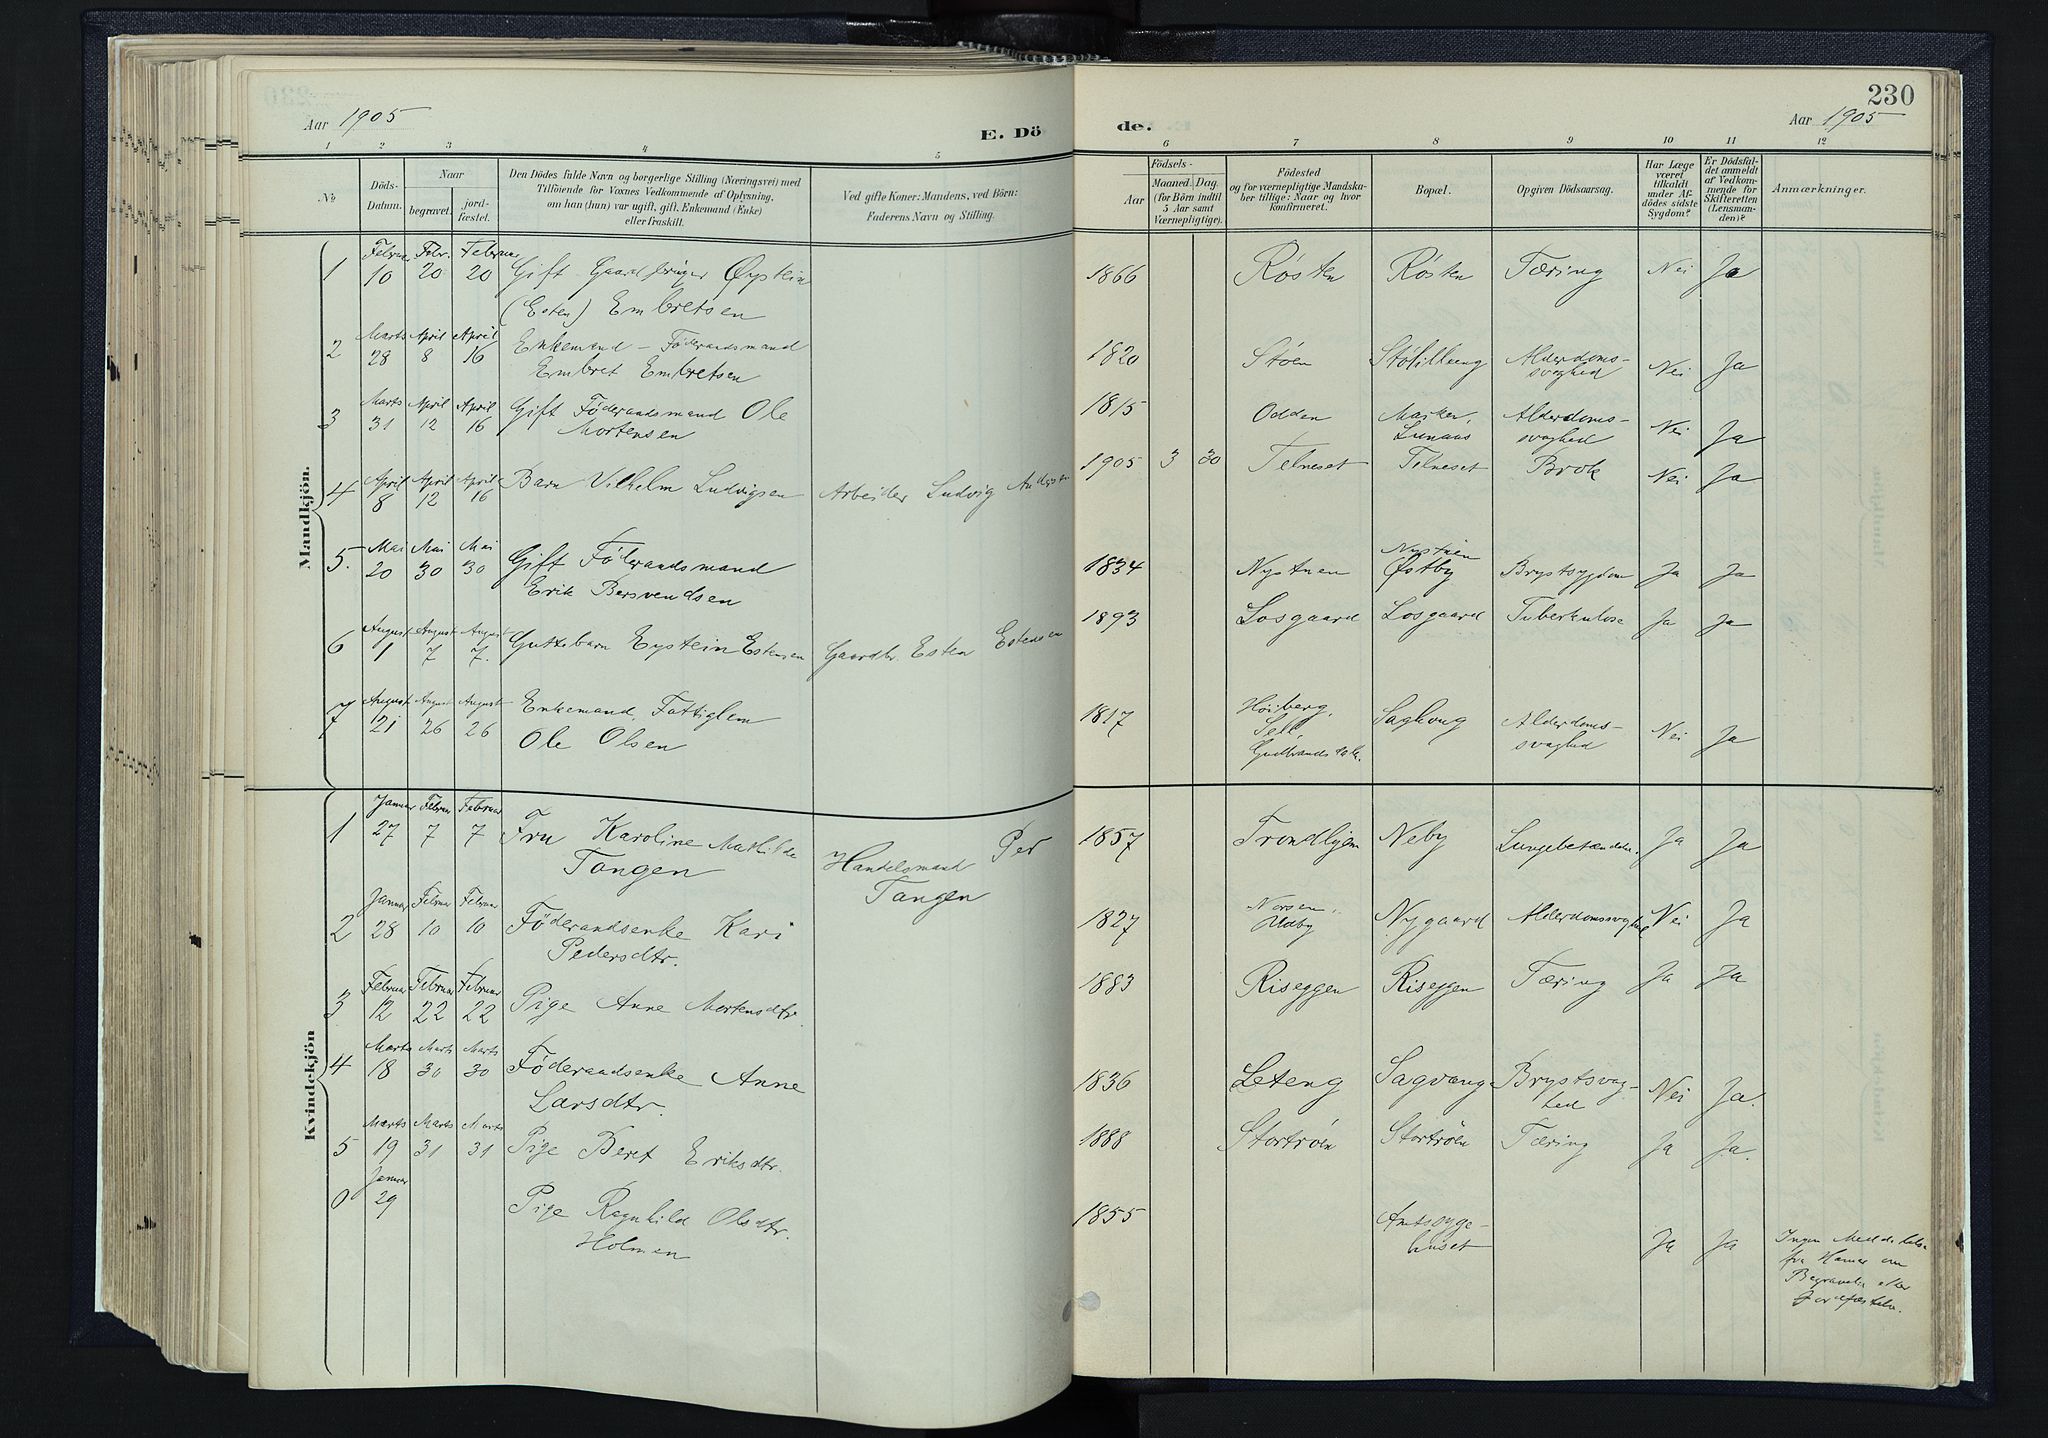 230
Aar 1905
E. Dö
de.
Aar 1905
1 2 3 4 5 6 7 8 9 10 11 12
№
Döds-
Datum.
Naar
begravet.
jord-
fæstet.
Den Dödes fulde Navn og borgerlige Stilling (Næringsvei) med
Tilföiende for Voxnes Vedkommende af Oplysning,
om han (hun) var ugift, gift, Enkemand (Enke)
eller fraskilt.
Ved gifte Koner: Mandens, ved Börn:
Faderens Navn og Stilling.
Födsels-
Aar
Maaned. Dag.
(for Börn indtil
5 Aar samt
Værnepligtige).
Födested
og for værnepligtige Mandska-
ber tillige: Naar og hvor
konfirmeret.
Bopæl.
Opgiven Dödsaarsag.
Har Læge
været
tilkaldt
under Af-
dödes sidste
Sygdom?
Er Dödsfal-
det anmeldt
af Vedkom-
mende for
Skifteretten
(Lensman-
den)?
Anmærkninger.
Mandkjön.
Februar Febr. Februar
1 10 20 20 Gift Gaardbruger Øystein 1866 Røsten Røsten Tæring Nei Ja
(Esten) Embretsen
Marts April April
2 28 8 16 Enkemand - Föderaadsmand 1820 Støen Alderdoms- Nei Ja
Embret Embretsen svaghed
Marts April April
3 31 12 16 Gift Föderaadsmand Ole 1815 Odden Alderdoms- Nei Ja
Mortensen Lunaas svaghed
April April April
4 8 12 16 Barn Vilhelm Ludvigsen Arbeider Ludvig Andersen 1905 3 30 Telneset Telneset Brok Nei Ja
Mai Mai Mai
Nystuen
5. 20 30 30 Gift Föderaadsmand 1834 Nystuen Østby Brystsygdom Ja Ja
Erik Bersvendsen
August August August
6 1 7 7. Guttebarn Eystein Estensen Gaardbr. Esten Estensen 1893 Losgaard Losgaard Tuberkulose Ja Ja
August August August
7 21 26 26 Enkemand, Fattiglem 1817 Høiberg, Saghaug Alderdoms- Nei Ja
Ole Olsen Sell svaghed
Gudbrandsdal.
Kvindekjön
Januar Februar Februar
1 27 7 7 Fru Karoline Mathilde Handelsmand Per 1857 Trondhjem Neby Lungebetændelse. Ja Ja
Tangen Tangen
Januar Februar Februar
2 28 10 10 Föderaadsenke Kari 1827 Udby Nygaard Alderdomssvaghed Nei Ja
Pedersdtr.
Februar Februar Februar
3 12 22 22 Pige Anne Mortensdtr. 1883 Riseggen Riseggen Tæring Ja Ja
Marts Marts Marts
4 18 30 30 Föderaadsenke Anne 1836 Leteng Sagvang Brystsvag- Nei Ja.
Larsdtr. hed
Marts Marts Marts
5 19 31 31 Pige Beret Eriksdtr. 1888 Stortrøen Stortrøen Tæring Ja Ja.
Januar
0 29 Pige Ragnhild Olsdtr. 1855 Amtssyge- Ja Ja Ingen Meddelelse
Holmen huset fra Hamar om
Begravelse eller
Jordfæstelse.